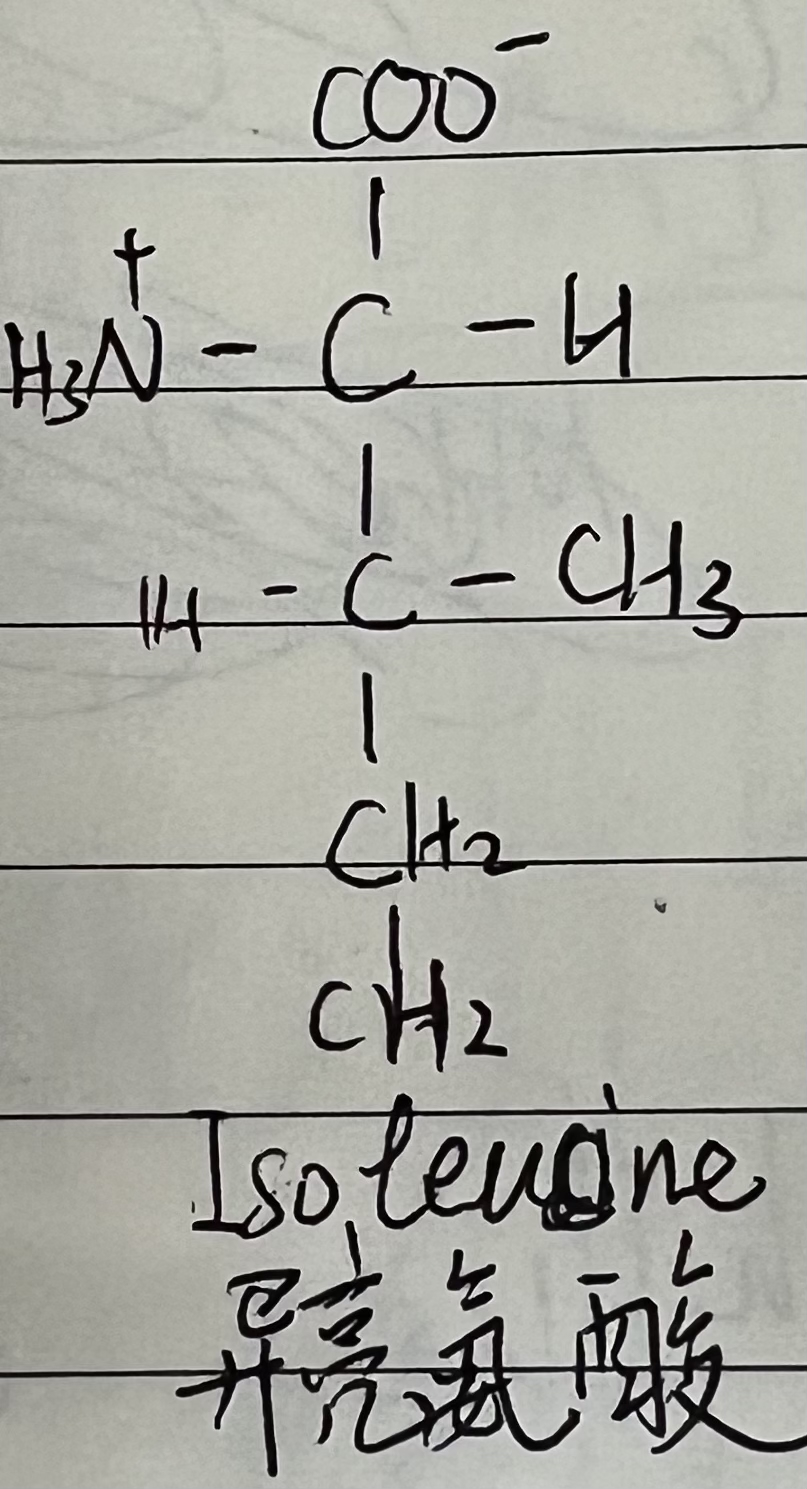 COO⁻
|
H₃N⁺ - C - H
|
H - C - CH₃
|
CH₂
|
CH₂
Isoleucine
异亮氨酸